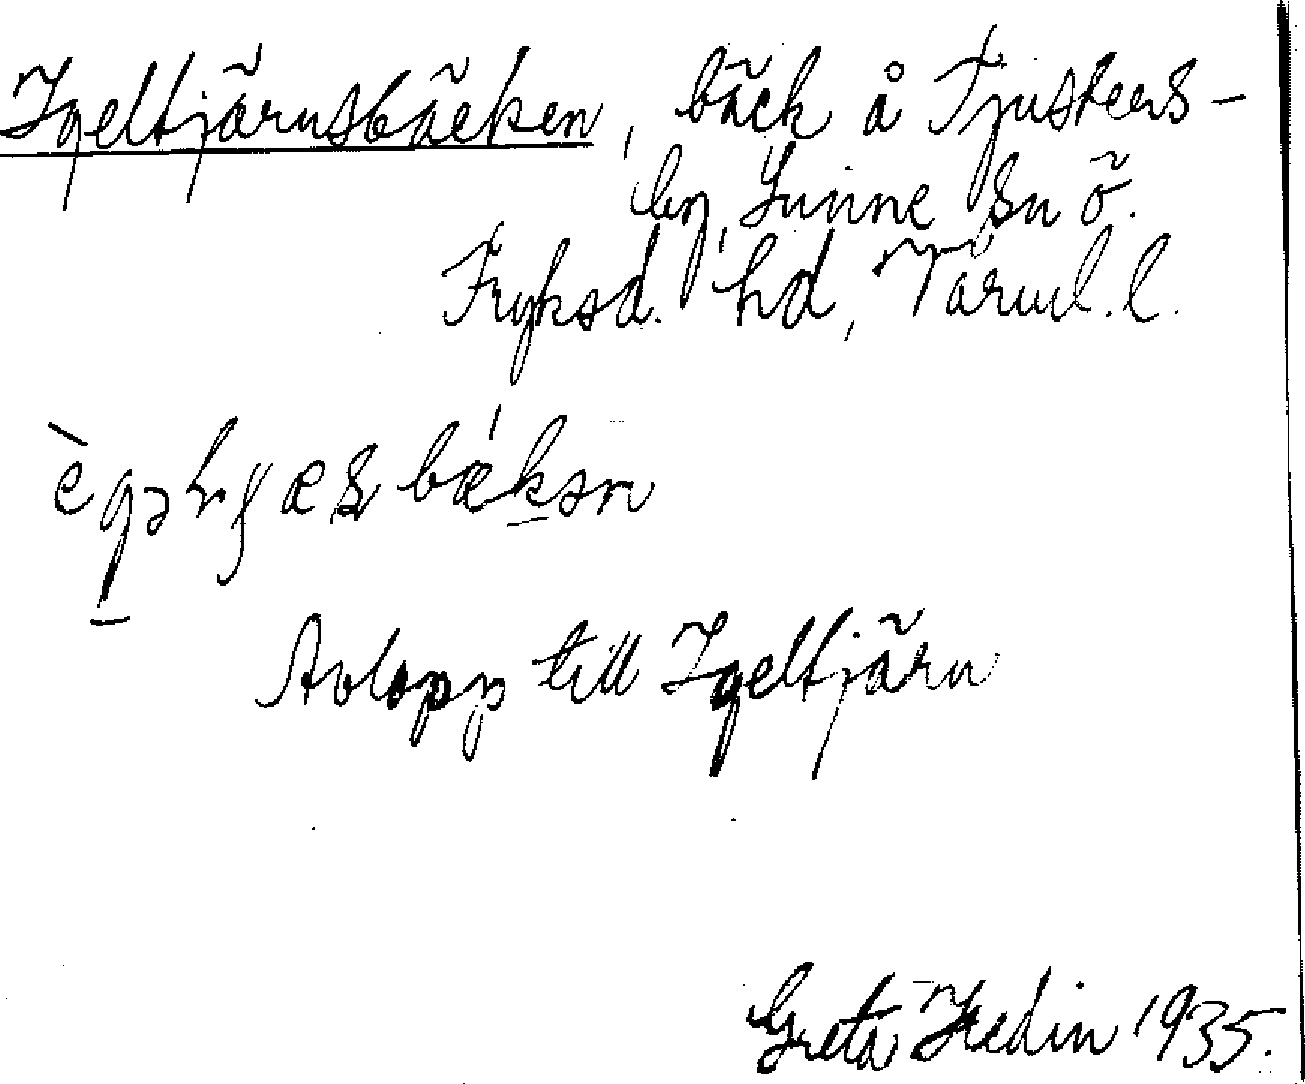 Igeltjärnsbäcken, bäck å Tjusters-
by, Sunne sn ö.
Fryksd. hd, Värml. l.
Avlopp till Igeltjärn
Greta Hedin 1935.